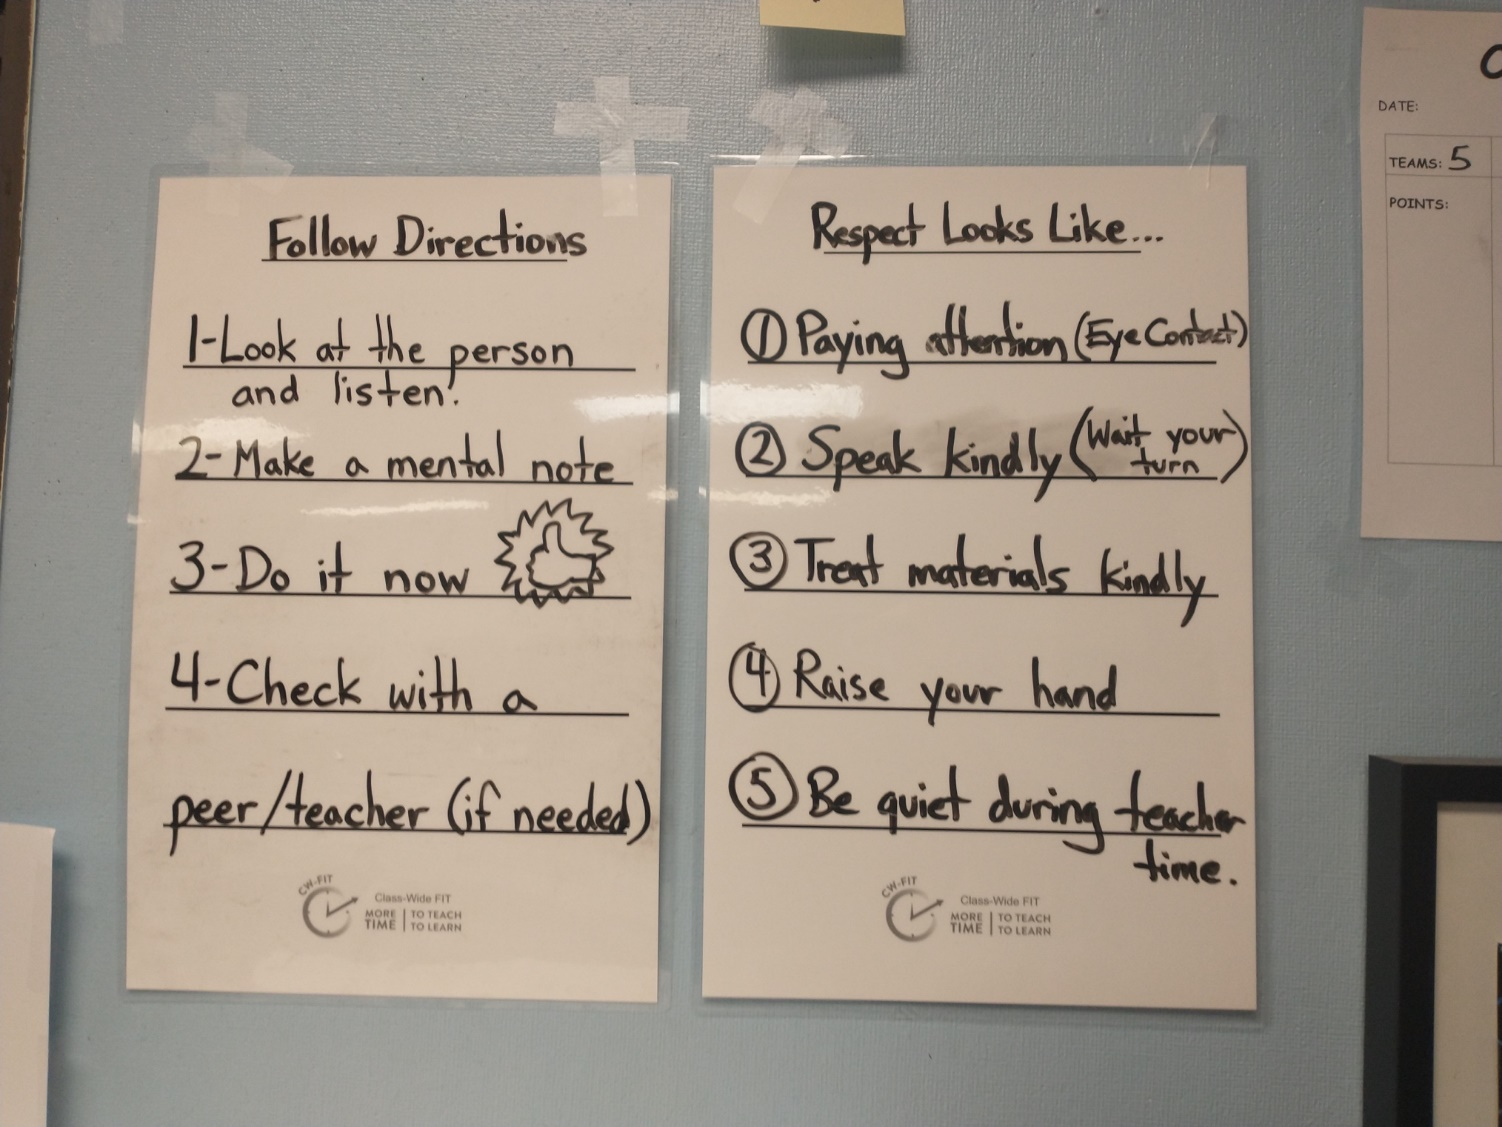 Follow Directions
1-Look at the person
and listen!
2-Make a mental note
3-Do it now
4-Check with a
peer/teacher (if needed)
CW-FIT
Class-Wide FIT
MORE TIME | TO TEACH TO LEARN
Respect Looks Like...
1 Paying attention (Eye Contact)
2 Speak kindly (Wait your
turn)
3 Treat materials kindly
4 Raise your hand
5 Be quiet during teacher
time.
CW-FIT
Class-Wide FIT
MORE TIME | TO TEACH TO LEARN
DATE:
TEAMS: 5
POINTS: